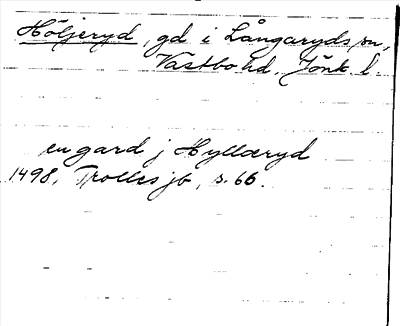 Höljeryd, gd i Långaryds sn,
Västbo hd. Jönk. l.
en gard j Hyllæryd
1498. Trolles jb, s. 66.